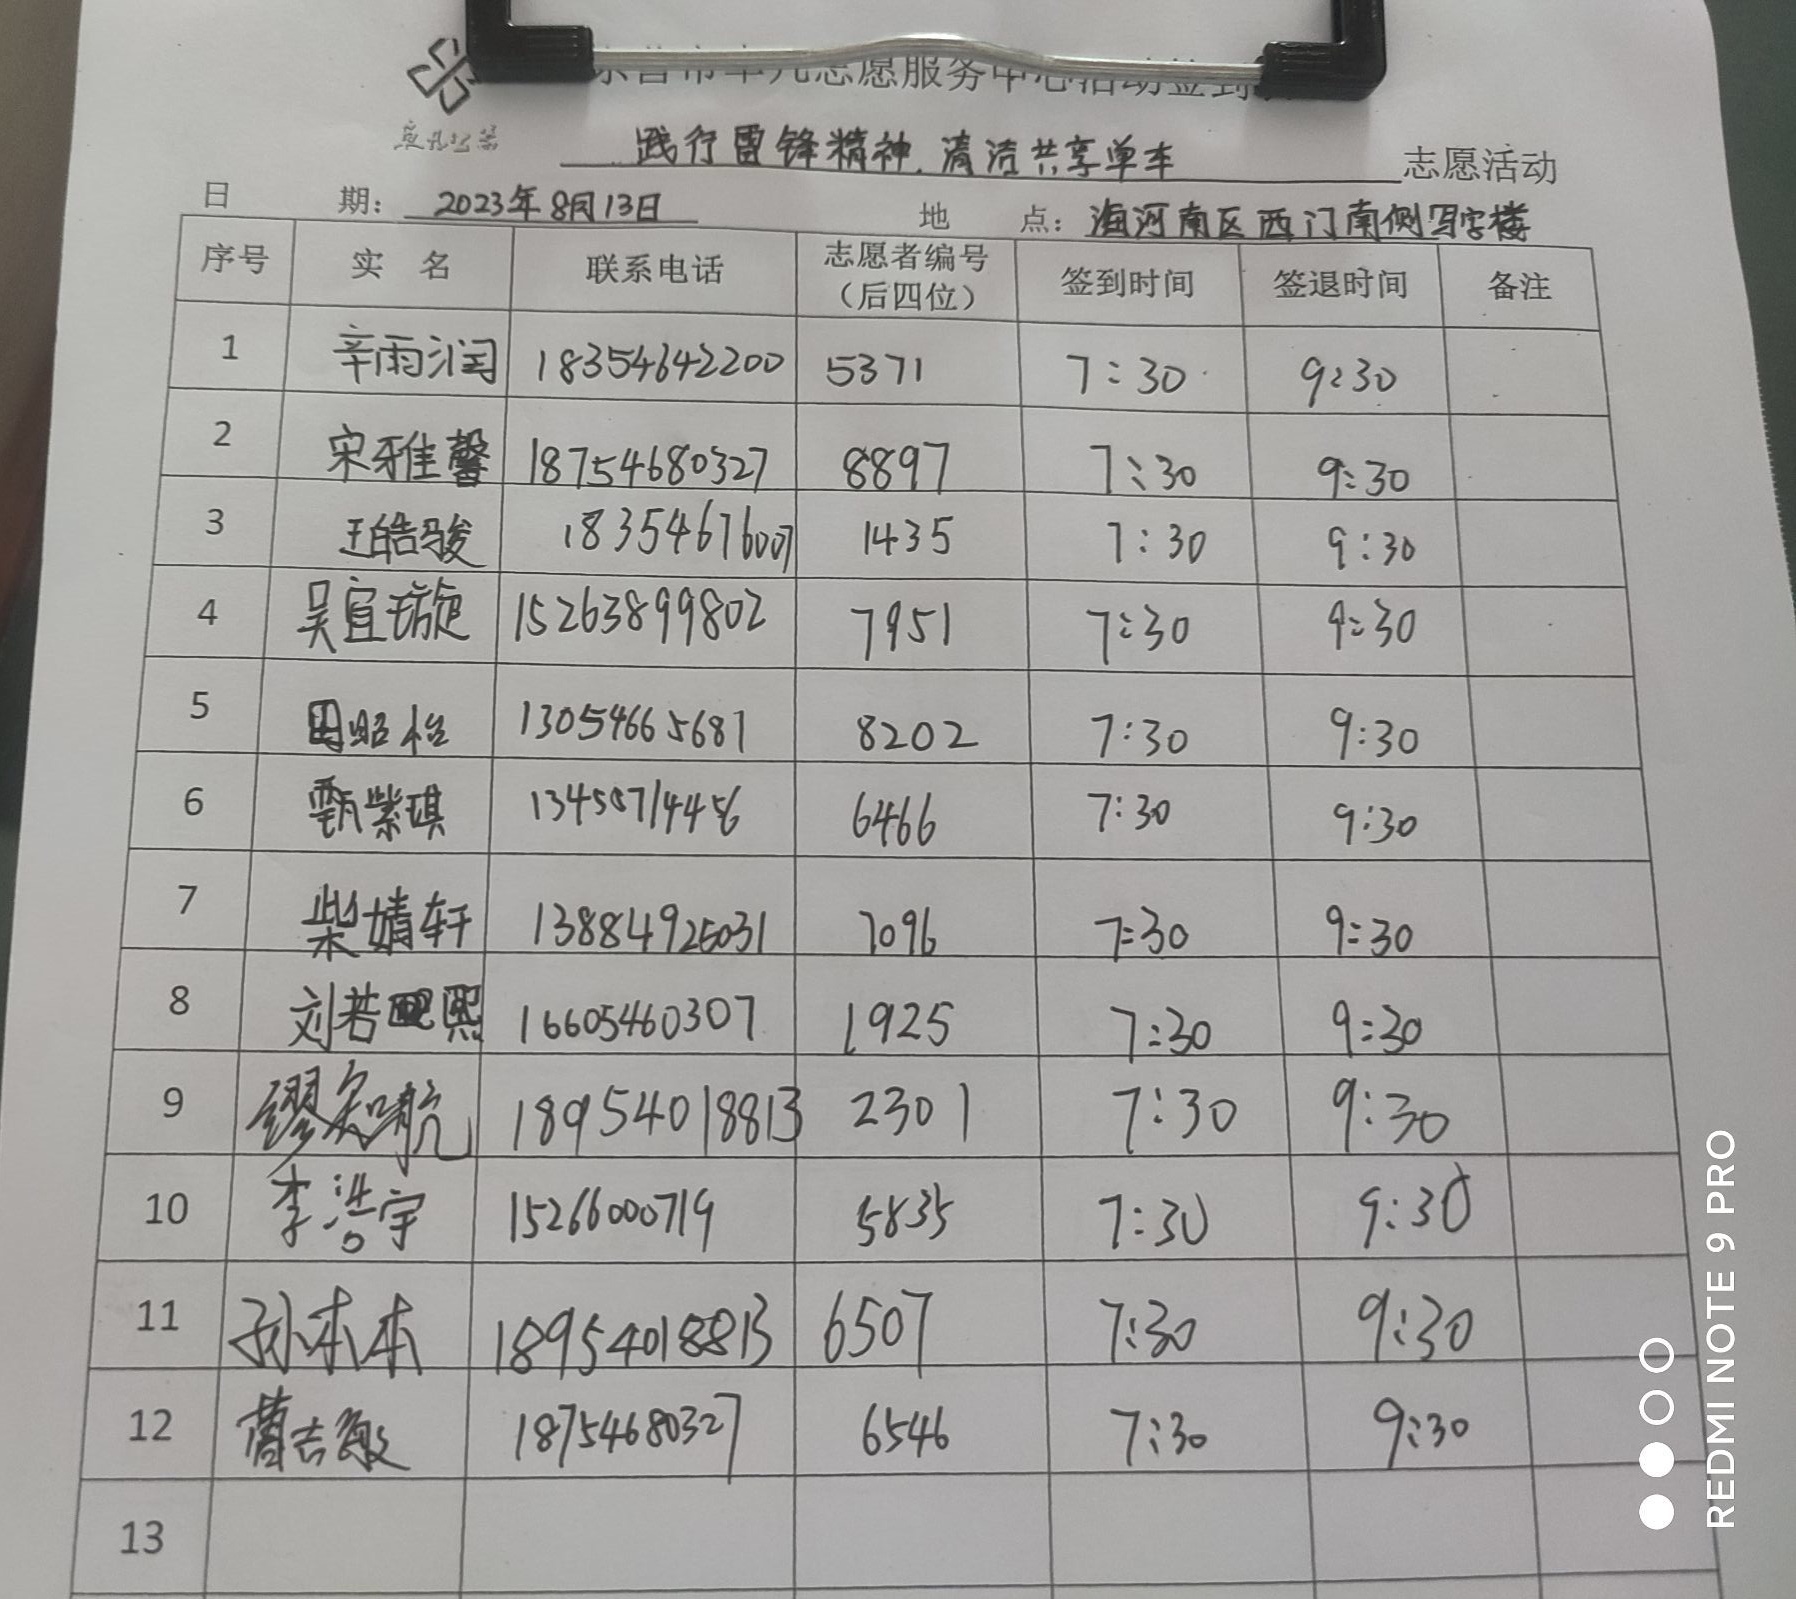 志愿服务中心活动签到
践行雷锋精神.清洁共享单车 志愿活动
日 期: 2023年8月13日 地 点: 海河南区西门南侧写字楼
序号 实 名 联系电话 志愿者编号（后四位） 签到时间 签退时间 备注
1 辛雨润 18354642200 5371 7:30 9:30
2 宋雅馨 18754680327 8897 7:30 9:30
3 王皓骏 18354676007 1435 7:30 9:30
4 吴宜璇 15263899802 7951 7:30 9:30
5 田昭怡 13054665681 8202 7:30 9:30
6 甄紫琪 13450714456 6466 7:30 9:30
7 柴婧轩 13884925031 7096 7:30 9:30
8 刘若熙 16605460307 1925 7:30 9:30
9 缪知航 18954018813 2301 7:30 9:30
10 李浩宇 15266000719 5835 7:30 9:30
11 孙本本 18954018813 6507 7:30 9:30
12 吉敏 18754680327 6546 7:30 9:30
13
REDMI NOTE 9 PRO